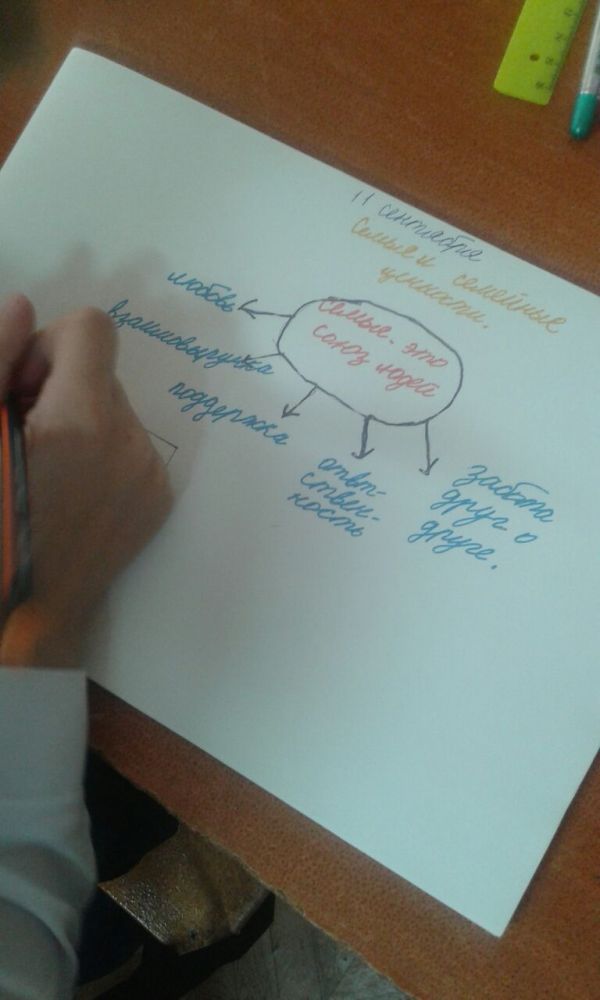 11 сентября
Семья и семейные
ценности.
Семья - это
союз людей
любовь
взаимовыручка
поддержка
ответ-
ствен-
ность
забота
друг о
друге.